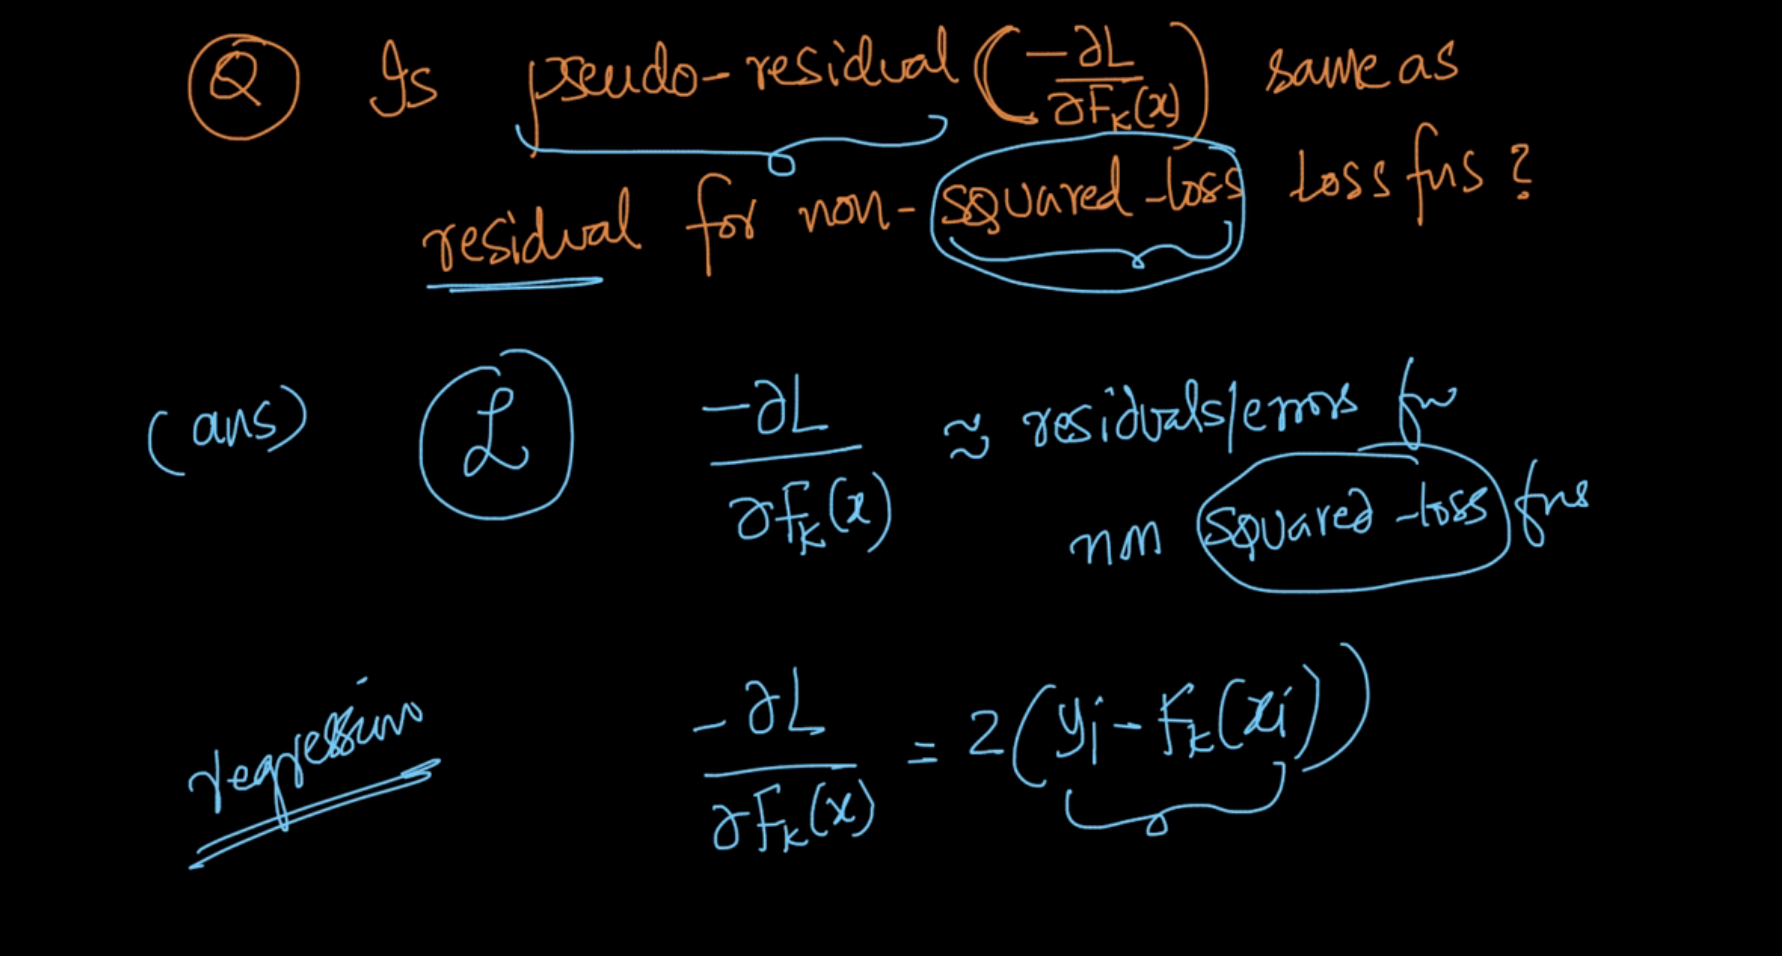 Q Is pseudo-residual (-∂L/∂F_k(x)) same as
residual for non-squared-loss loss fns?
(ans) L -∂L/∂F_k(x) ≈ residuals/errors for
non squared-loss fns
regression -∂L/∂F_k(x) = 2(yi - F_k(xi))